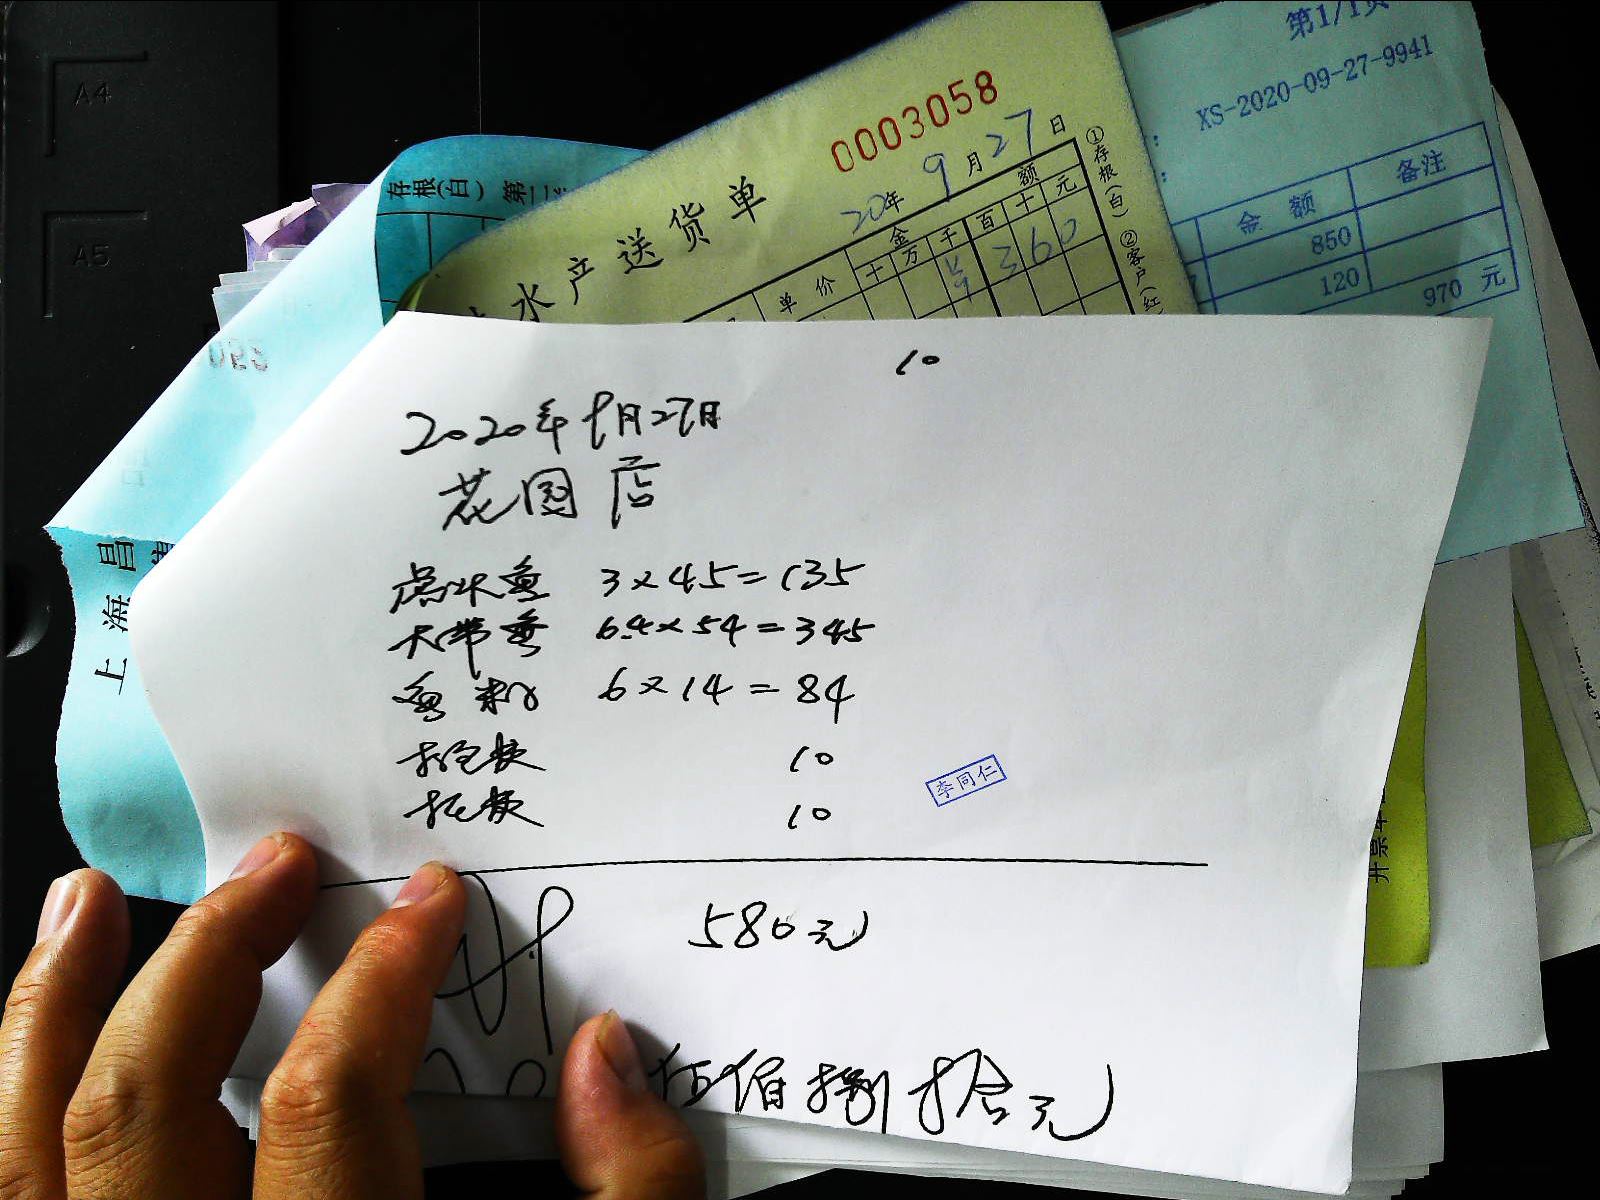 A4
A5
存根(白)
第二
上海昌
0003058
水产送货单
20年9月27日
单价
金额
十万千百十元
¥360
①存根(白)②客户(红)
第1/1页
XS-2020-09-27-9941
金额 备注
850
120
970 元
10
2020年9月27日
花园店
虎头鱼 3×45=135
大带鱼 6.4×54=345
鱼 6×14=84
10
10
李同仁
580元
伍佰捌拾元